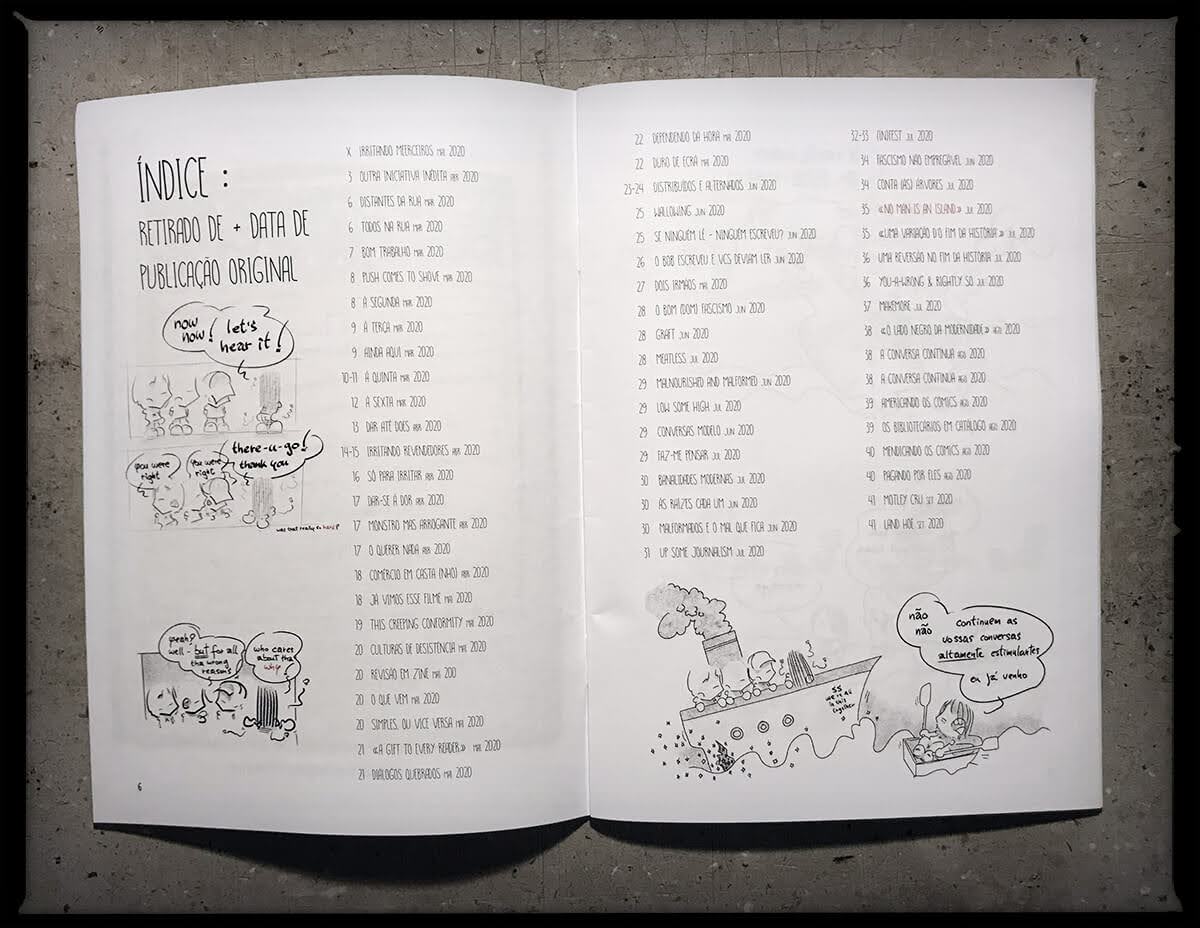 ÍNDICE :
RETIRADO DE + DATA DE
PUBLICAÇÃO ORIGINAL
now now!
let's hear it!
you were right
you were right
there-u-go!
thank you
was that really so hard?
yeah?
well - but for all
the wrong
reasons
who cares
about the
why?
6
X IRRITANDO MEERCEIROS MAI 2020
3 OUTRA INICIATIVA INÉDITA ABR 2020
6 DISTANTES DA RUA MAR 2020
6 TODOS NA RUA MAR 2020
7 BOM TRABALHO MAR 2020
8 PUSH COMES TO SHOVE MAR 2020
8 À SEGUNDA MAR 2020
9 À TERÇA MAR 2020
9 AINDA AQUI MAR 2020
10-11 À QUINTA MAR 2020
12 À SEXTA MAR 2020
13 DAR ATÉ DOER ABR 2020
14-15 IRRITANDO REVENDEDORES ABR 2020
16 SÓ PARA IRRITAR ABR 2020
17 DAR-SE À DOR ABR 2020
17 MONSTRO MAS ARROGANTE ABR 2020
17 O QUERER NADA ABR 2020
18 COMÉRCIO EM CASTA (NHO) ABR 2020
18 JÁ VIMOS ESSE FILME MAI 2020
19 THIS CREEPING CONFORMITY MAI 2020
20 CULTURAS DE DESISTÊNCIA MAI 2020
20 REVISÃO EM ZINE MAI 200
20 O QUE VEM MAI 2020
20 SIMPLES, OU VICE VERSA MAI 2020
21 «A GIFT TO EVERY READER» MAI 2020
21 DIÁLOGOS QUEBRADOS MAI 2020
22 DEPENDENDO DA HORA MAI 2020
22 DURO DE ECRÃ MAI 2020
23-24 DISTRIBUÍDOS E ALTERNADOS JUN 2020
25 WALLOWING JUN 2020
25 SE NINGUÉM LÊ - NINGUÉM ESCREVEU? JUN 2020
26 O BOB ESCREVEU E VCS DEVIAM LER JUN 2020
27 DOIS IRMÃOS MAI 2020
28 O BOM (DOM) FASCISMO JUN 2020
28 GRAFT JUN 2020
28 MEATLESS JUL 2020
29 MALNOURISHED AND MALFORMED JUN 2020
29 LOW SOME HIGH JUL 2020
29 CONVERSAS MODELO JUN 2020
29 FAZ-ME PENSAR JUL 2020
30 BANALIDADES MODERNAS JUL 2020
30 ÀS RAÍZES CADA UM JUN 2020
30 MALFORMADOS E O MAL QUE FICA JUN 2020
31 UP SOME JOURNALISM JUL 2020
32-33 (IN)FEST JUL 2020
34 FASCISMO NÃO EMPREGÁVEL JUN 2020
34 CONTA (AS) ÁRVORES JUL 2020
35 «NO MAN IS AN ISLAND» JUL 2020
35 «UMA VARIAÇÃO D'O FIM DA HISTÓRIA» JUL 2020
36 UMA REVERSÃO NO FIM DA HISTÓRIA JUL 2020
36 YOU-A-WRONG & RIGHTLY SO JUL 2020
37 MAKEMORE JUL 2020
38 «O LADO NEGRO DA MODERNIDADE» AGO 2020
38 A CONVERSA CONTINUA AGO 2020
38 A CONVERSA CONTINUA AGO 2020
39 AMERICANDO OS COMICS AGO 2020
39 OS BIBLIOTECÁRIOS EM CATÁLOGO AGO 2020
40 MENDICANDO OS COMICS AGO 2020
40 PAGANDO POR ELES AGO 2020
41 MOTLEY CRU SET 2020
41 LAND HOE SET 2020
SS
we're all
in this
together
não
não
continuem as
vossas conversas
altamente estimulantes
eu já venho